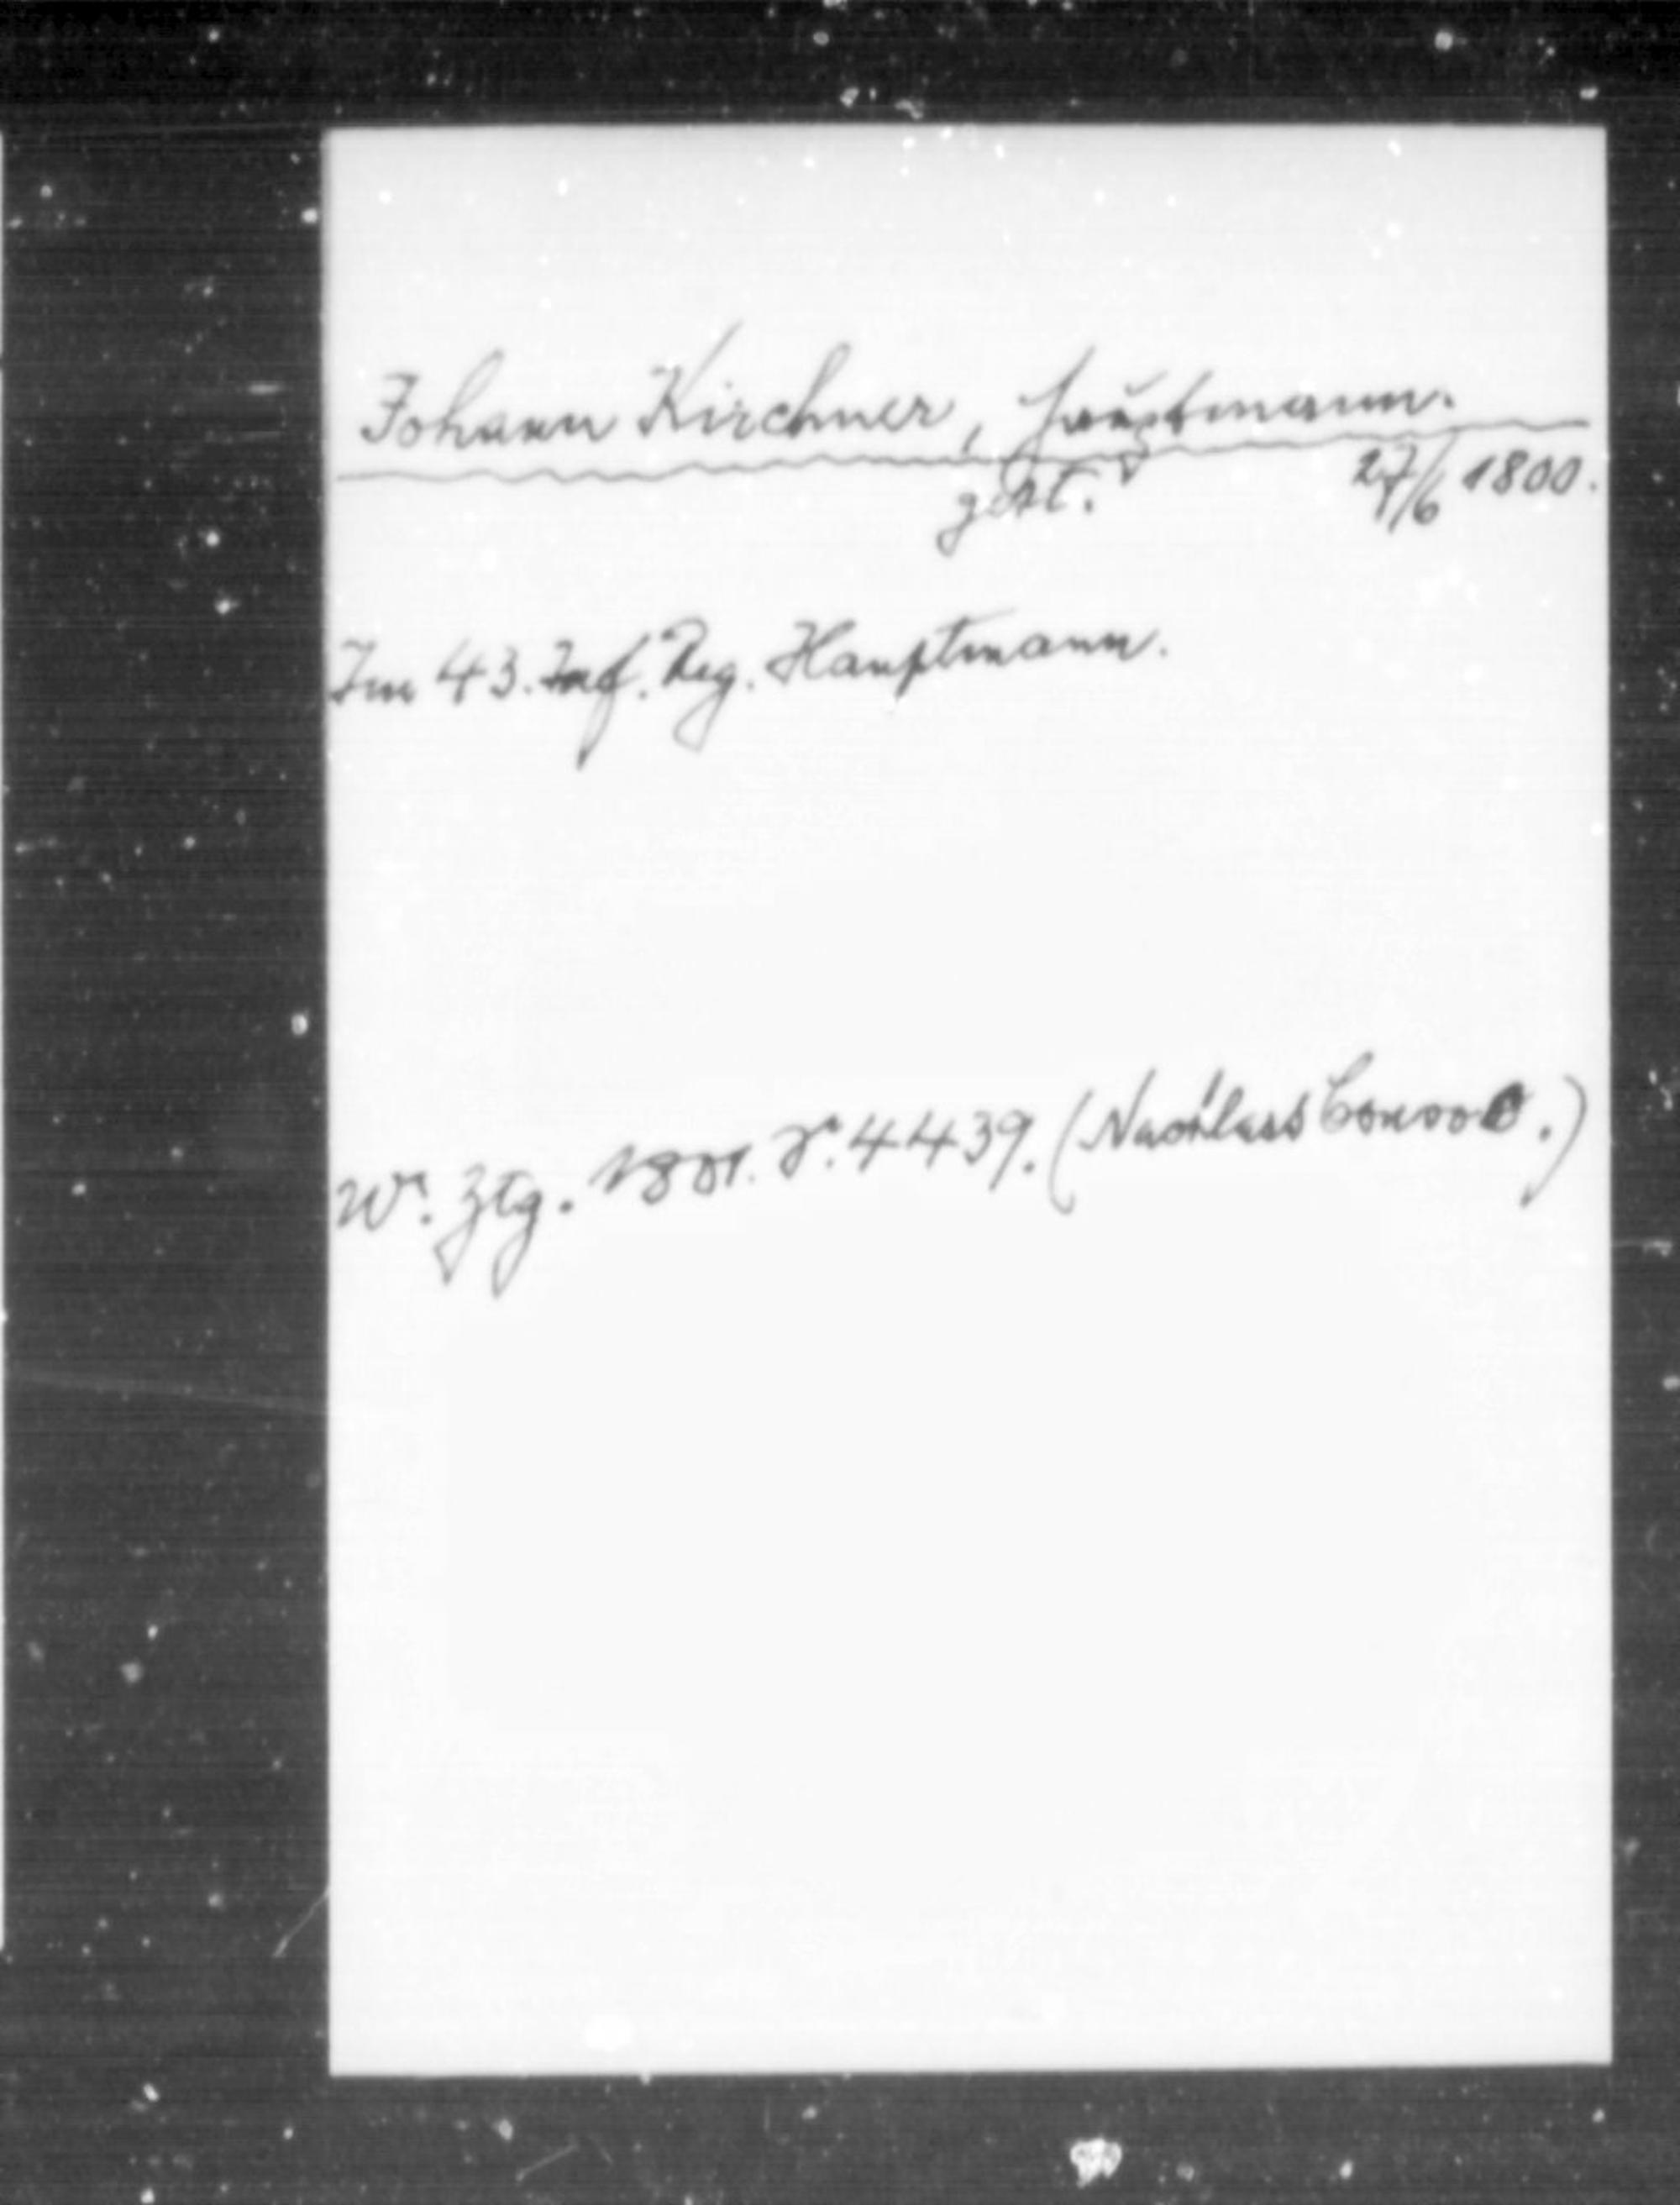 Johann Kirchner, Hauptmann.
gest. 27/6 1800.
Im 43. Inf. Reg. Hauptmann.
Wr. Ztg. 1801. S. 4439. (Nachlass Convoc.)